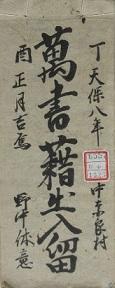 丁 天保八年
酉 正月吉烏
萬書籍出入留
中奈良村
野中休意